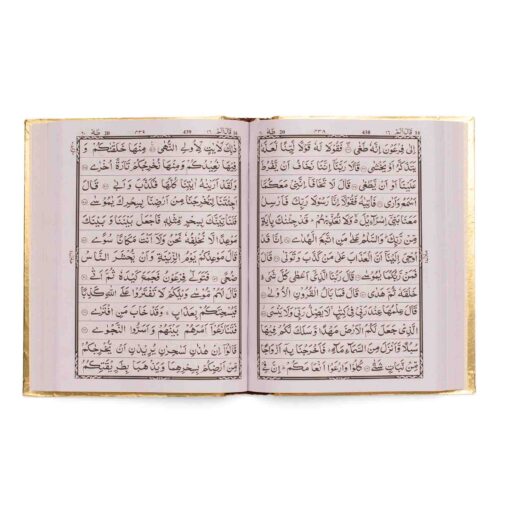 قال الم ١٦ 438 طه 20
اِلٰى فِرْعَوْنَ اِنَّهٗ طَغٰى ۝ فَقُوْلَا لَهٗ قَوْلًا لَّيِّنًا لَّعَلَّهٗ
يَتَذَكَّرُ اَوْ يَخْشٰى ۝ قَالَا رَبَّنَاۤ اِنَّنَا نَخَافُ اَنْ يَّفْرُطَ
عَلَيْنَاۤ اَوْ اَنْ يَّطْغٰى ۝ قَالَ لَا تَخَافَاۤ اِنَّنِيْ مَعَكُمَاۤ
اَسْمَعُ وَاَرٰى ۝ فَاْتِيٰهُ فَقُوْلَاۤ اِنَّا رَسُوْلَا رَبِّكَ فَاَرْسِلْ
مَعَنَا بَنِيْۤ اِسْرَآءِيْلَ ۙ وَلَا تُعَذِّبْهُمْ ؕ قَدْ جِئْنٰكَ بِاٰيَةٍ
مِّنْ رَّبِّكَ ؕ وَالسَّلٰمُ عَلٰى مَنِ اتَّبَعَ الْهُدٰى ۝ اِنَّا قَدْ
اُوْحِيَ اِلَيْنَاۤ اَنَّ الْعَذَابَ عَلٰى مَنْ كَذَّبَ وَتَوَلّٰى ۝ قَالَ
فَمَنْ رَّبُّكُمَا يٰمُوْسٰى ۝ قَالَ رَبُّنَا الَّذِيْۤ اَعْطٰى كُلَّ شَيْءٍ
خَلْقَهٗ ثُمَّ هَدٰى ۝ قَالَ فَمَا بَالُ الْقُرُوْنِ الْاُوْلٰى ۝
قَالَ عِلْمُهَا عِنْدَ رَبِّيْ فِيْ كِتٰبٍ ۚ لَا يَضِلُّ رَبِّيْ وَلَا يَنْسَى ۝
الَّذِيْ جَعَلَ لَكُمُ الْاَرْضَ مَهْدًا وَّسَلَكَ لَكُمْ فِيْهَا
سُبُلًا وَّاَنْزَلَ مِنَ السَّمَآءِ مَآءً ؕ فَاَخْرَجْنَا بِهٖۤ اَزْوَاجًا
مِّنْ نَّبَاتٍ شَتّٰى ۝ كُلُوْا وَارْعَوْا اَنْعَامَكُمْ ؕ اِنَّ فِيْ
قال الم ١٦ 439 طه 20
ذٰلِكَ لَاٰيٰتٍ لِّاُولِي النُّهٰى ۝ مِنْهَا خَلَقْنٰكُمْ وَ
فِيْهَا نُعِيْدُكُمْ وَمِنْهَا نُخْرِجُكُمْ تَارَةً اُخْرٰى ۝
وَلَقَدْ اَرَيْنٰهُ اٰيٰتِنَا كُلَّهَا فَكَذَّبَ وَاَبٰى ۝ قَالَ
اَجِئْتَنَا لِتُخْرِجَنَا مِنْ اَرْضِنَا بِسِحْرِكَ يٰمُوْسٰى ۝
فَلَنَاْتِيَنَّكَ بِسِحْرٍ مِّثْلِهٖ فَاجْعَلْ بَيْنَنَا وَبَيْنَكَ
مَوْعِدًا لَّا نُخْلِفُهٗ نَحْنُ وَلَاۤ اَنْتَ مَكَانًا سُوًى ۝
قَالَ مَوْعِدُكُمْ يَوْمُ الزِّيْنَةِ وَاَنْ يُّحْشَرَ النَّاسُ
ضُحًى ۝ فَتَوَلّٰى فِرْعَوْنُ فَجَمَعَ كَيْدَهٗ ثُمَّ اَتٰى ۝
قَالَ لَهُمْ مُّوْسٰى وَيْلَكُمْ لَا تَفْتَرُوْا عَلَى اللّٰهِ كَذِبًا
فَيُسْحِتَكُمْ بِعَذَابٍ ۚ وَقَدْ خَابَ مَنِ افْتَرٰى ۝
فَتَنَازَعُوْۤا اَمْرَهُمْ بَيْنَهُمْ وَاَسَرُّوا النَّجْوٰى ۝
قَالُوْۤا اِنْ هٰذٰنِ لَسٰحِرٰنِ يُرِيْدٰنِ اَنْ يُّخْرِجٰكُمْ
مِّنْ اَرْضِكُمْ بِسِحْرِهِمَا وَيَذْهَبَا بِطَرِيْقَتِكُمُ